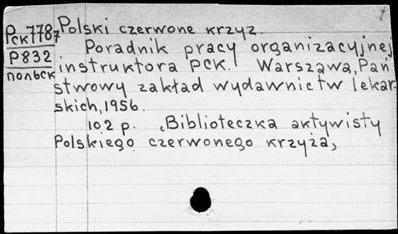 P778 Polski czerwone krzyz.
Pck7787
P832 Poradnik pracy organizacyjnej
польск instruktora PCK. Warszawa, Pań
stwowy zakład wydawnictw lekar-
skich, 1956.
102 p. (Biblioteczka aktywisty
Polskiego czerwonego krzyża)